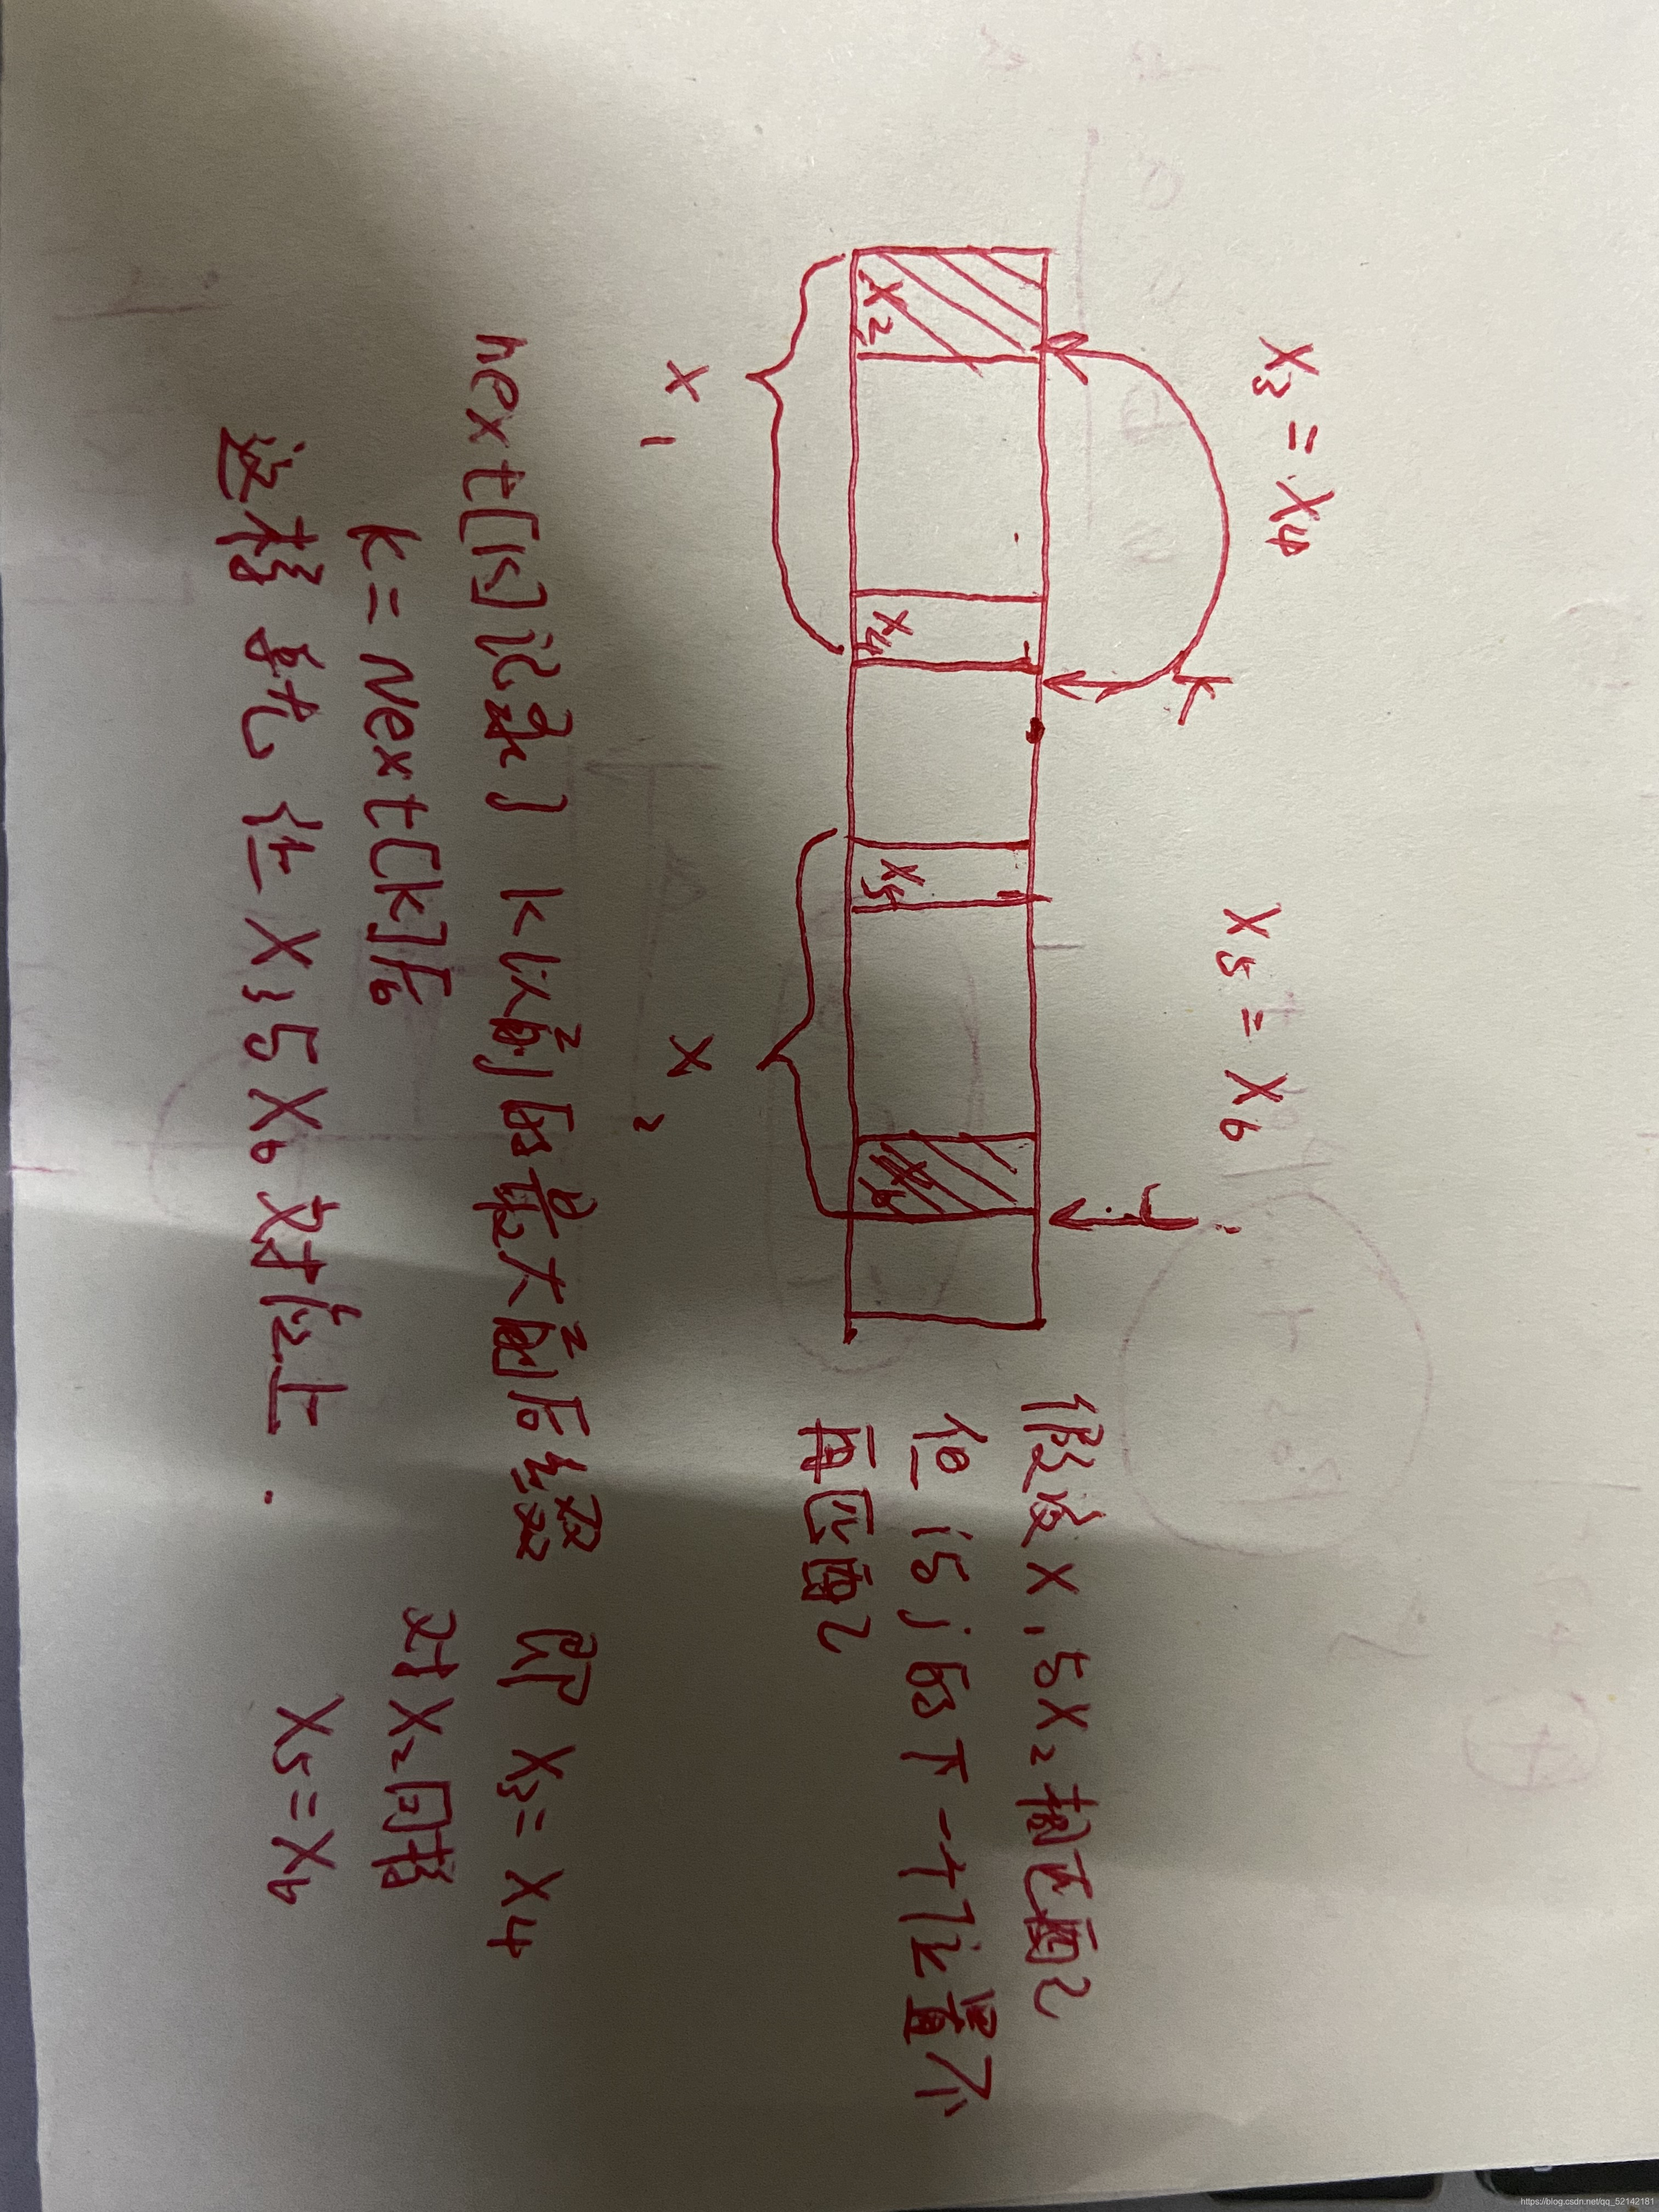 X3 = X4
X5 = X6
k
j
X2
X4
X5
X6
X1
X2
假设X1与X2相匹配
但i与j的下一个位置不
再匹配
next[k]记录了k以前的最大前后缀 即X3=X4
k=Next[k]后 对X2同样
这样就让X3与X6对应上. X5=X6
https://blog.csdn.net/qq_52142181